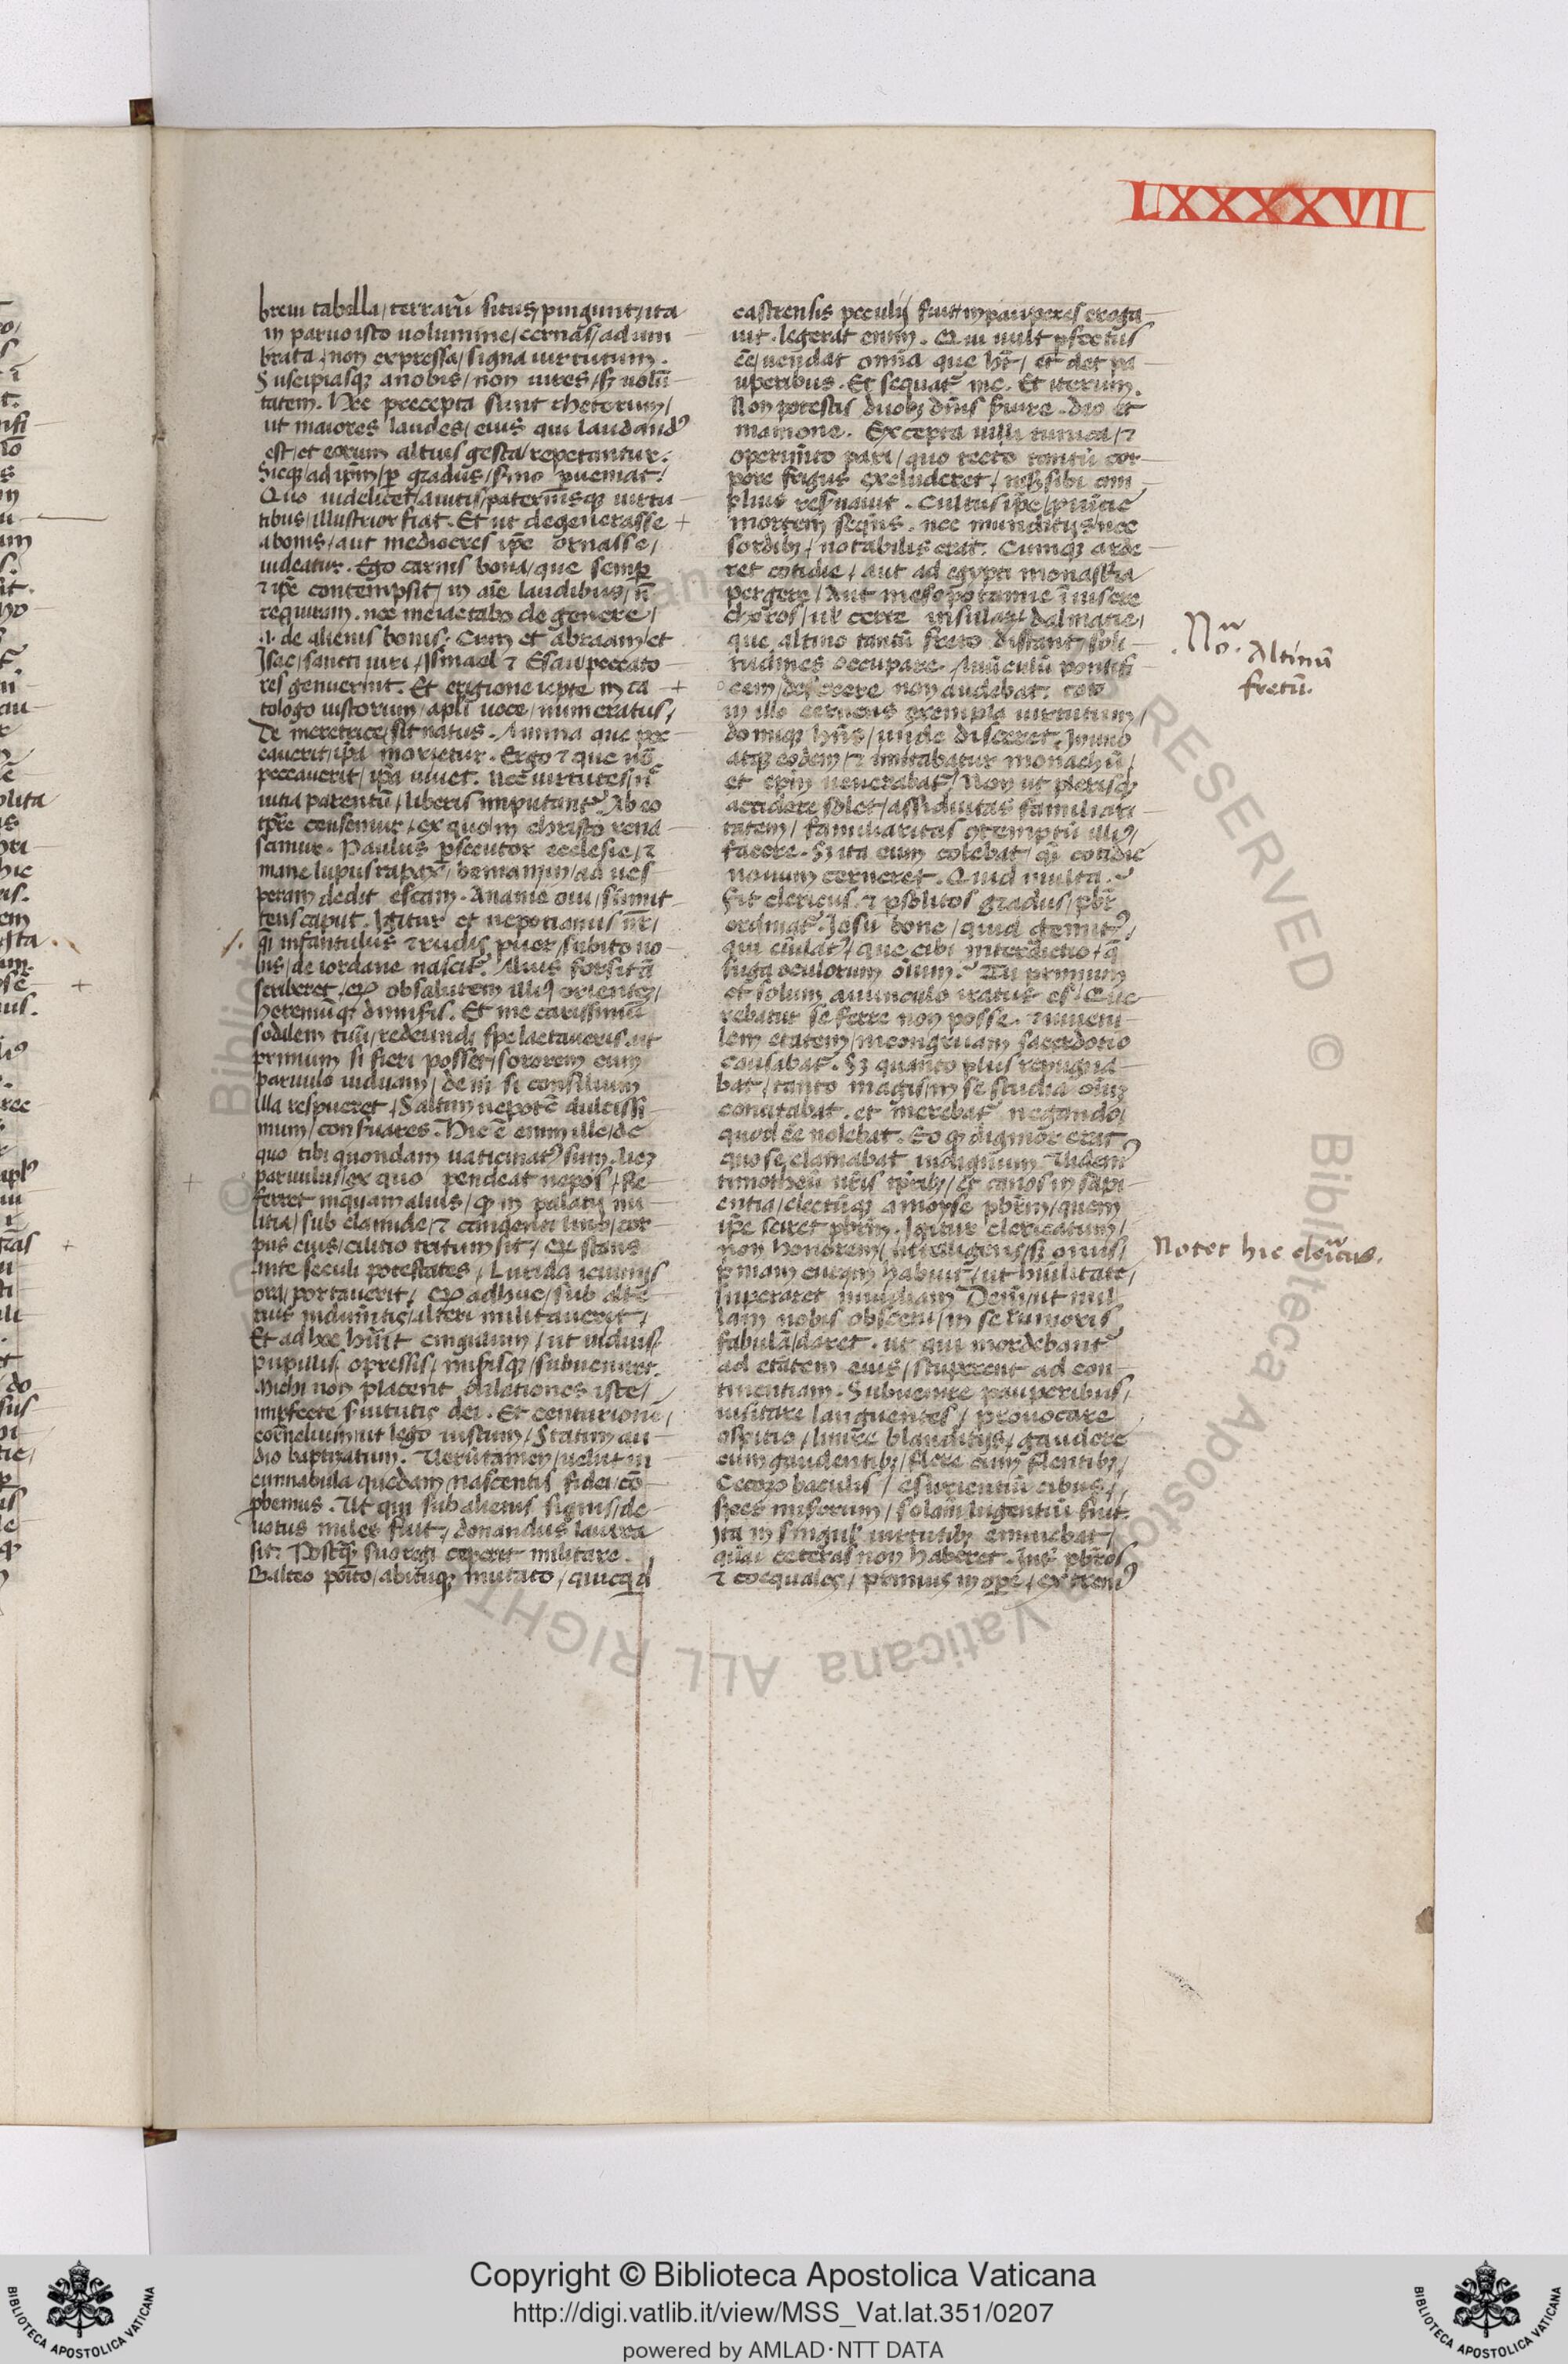 LXXXXVII
breui tabella / terrarū situs / pingunt / ita
in paruo isto uolumine / cernas / adum
brata / non expressa / signa uirtutum .
Suscipiasq; a nobis / non uires / sʒ uolū
tatem . Hec precepta sunt rhetorum /
ut maiores laudes / eius qui laudandꝰ
est / et eorum altius gesta / repetantur .
Sicq; ad ipm̄ / ꝑ gradus / sermo ꝑueniat .
Quo uidelicet / auitis / paternisq; uirtu
tibus / illustrior fiat . Et ut degenerasse
a bonis / aut mediocres ipē ornasse /
uideatur . Ego carnis bona / que semꝑ
⁊ ipē contempsit / in aīe laudibus / n̄
requiram . nec me iactabo de genere /
.i. de alienis bonis . Cum et abraam / et
Isac / sancti uiri / Ismael ⁊ Esau / peccato
res genuerint . Et e regione iepte in ca
tologo iustorum / apl̄i uoce / numeratus /
De meretrice / sit natus . Anima que pec
cauerit / ipā morietur . Ergo ⁊ que nō
peccauerit / ipā uiuet . nec uirtutes / n̄
uitia parentū / liberis imputantʳ . Ab eo
tpr̄e censemur / ex quo in christo rena
scimur . Paulus ꝑsecutor ecclesie / ⁊
mane lupus rapax / beniamin / ad ues
peram dedit escam . Ananie oui / summit
tens caput . Igitur et nepotianus nr̄ /
q̄si infantulus ⁊ rudis puer / subito no
bis / de iordane nascitʳ . Alius forsitā
scriberet / ꝙ ob salutem illiꝰ orientē /
heremūq; dimisis . Et me carissimū
sodalem tuū / redeundi spe lactaueris . ut
primum si fieri posset / sororem cum
paruulo uiduam / dein si consilium
illa respueret / Saltim nepotē dulcissi
mum / conseruares . Hic ē enim ille / de
quo tibi quondam uaticinatꝰ sum . licʒ
paruulus / ex quo pendeat nepos / Re
ferret inquam alius / ꝙ in palatij mi
litia / sub clamide / ⁊ candenti lino / cor
pus eius / cilitio tritum sit / ꝙ stans
ante seculi potestates / Lurida ieiunijs
ora / portauerit / ꝙ adhuc / sub alte
rius indumētis / alteri militauerit /
Et ad hoc hūit cingulum / ut uiduis /
pupillis / opressis / miserisq; / subueniret .
Michi non placent dilationes iste /
imperfecte seruitutis dei . Et centurionē /
cornelium / ut lego iustum / Statim au
dio baptizatum . Uerūtamen / uelut in
cunnabula quedam / nascentis fidei / cō
probemus . Ut qui sub alienis signis / de
uotus miles fuit / donandus laurea
sit . Postq̄ suo regi ceperit militare .
Balteo posito / abituq; mutato / quicq̄d
castrensis peculij fuit / in pauperes eroga
uit . legerat enim . Qui uult ꝑfectus
eē / uendat omnia que ht̄ / et det pa
uperibus . Et sequatʳ me . Et iterum .
Non potestis duobʒ dnīs seruire . deo et
mamone . Excepta uili tunica / ⁊
operimēto pari / quo tecto tantū cor
pore frigus excluderet / nihil sibi am
plius reseruauit . Cultus ipē / prouincie
morem sequens . nec munditijs / nec
sordibʒ / notabilis erat . Cumq; arde
ret cotidie / aut ad egypti monasteria
pergere / Aut mesopotamie īuisere
choros / uel certe insulaꝝ dalmatie /
que altino tantū freto distant / soli
tudines occupare . Auūculū pontifi
cem / deserere non audebat . tot
in illo cernens exempla uirtutum /
domiq; hn̄s / unde disceret . In uno
atq; eodem / ⁊ imitabatur monachū /
et epm̄ uenerabatʳ / Non ut plerisq;
accidere solet / assiduitas familiari
tatem / familiaritas ɔtemptū illiꝰ /
facere . Sʒ ita eum colebat / q̄si cotidie
nouum cerneret . Quid multa .
Fit clericus . ⁊ ꝑ solitos gradus / pbr̄
ordinatʳ . Iesu bone / quid gemitꝰ /
qui eiulatꝰ / que cibi interdictio / q̄
fuga oculorum oīum . Tū primum
et solum auunculo iratus es . Que
rebatur se ferre non posse . ⁊ iuueni
lem etatem / incongruam sacerdotio
causabatʳ . Sʒ quanto plus repugna
bat / tanto magis / in se studia oīuʒ
concitabat . et merebatʳ negando /
quod eē nolebat . Eo ꝙ dignior erat
quo se clamabat indignum . Uidemꝰ
timotheū nr̄is tpr̄ibʒ / et canos in sapi
entia / electūq; a moyse pbrm̄ / quem
ipē sciret pbrm̄ . Igitur clericatum /
non honorem / intelligens / sʒ onus /
primam curam habuit / ut hūilitate /
superaret inuidiam . Dein / ut nul
lam nobis obsceni / in se rumoris
fabulā / daret . ut qui mordebantʳ
ad etatem eius / stuperent ad con
tinentiam . Subuenire pauperibus /
uisitare languentes / prouocare
ospitio / linire blanditijs / gaudere
cum gaudentibʒ / flere cum flentibʒ /
Cecoꝝ baculus / esurientiū cibus /
spes miserorum / solamē lugentiū fuit .
Ita in singulis uirtutibʒ eminebat /
quasi ceteras non haberet . Int̄ pbr̄os
⁊ coequales / primus in opere / extremꝰ
No. Altinū
fretū.
Notet hic clericus .
Copyright © Biblioteca Apostolica Vaticana
http://digi.vatlib.it/view/MSS_Vat.lat.351/0207
powered by AMLAD·NTT DATA
BIBLIOTECA APOSTOLICA VATICANA
BIBLIOTECA APOSTOLICA VATICANA